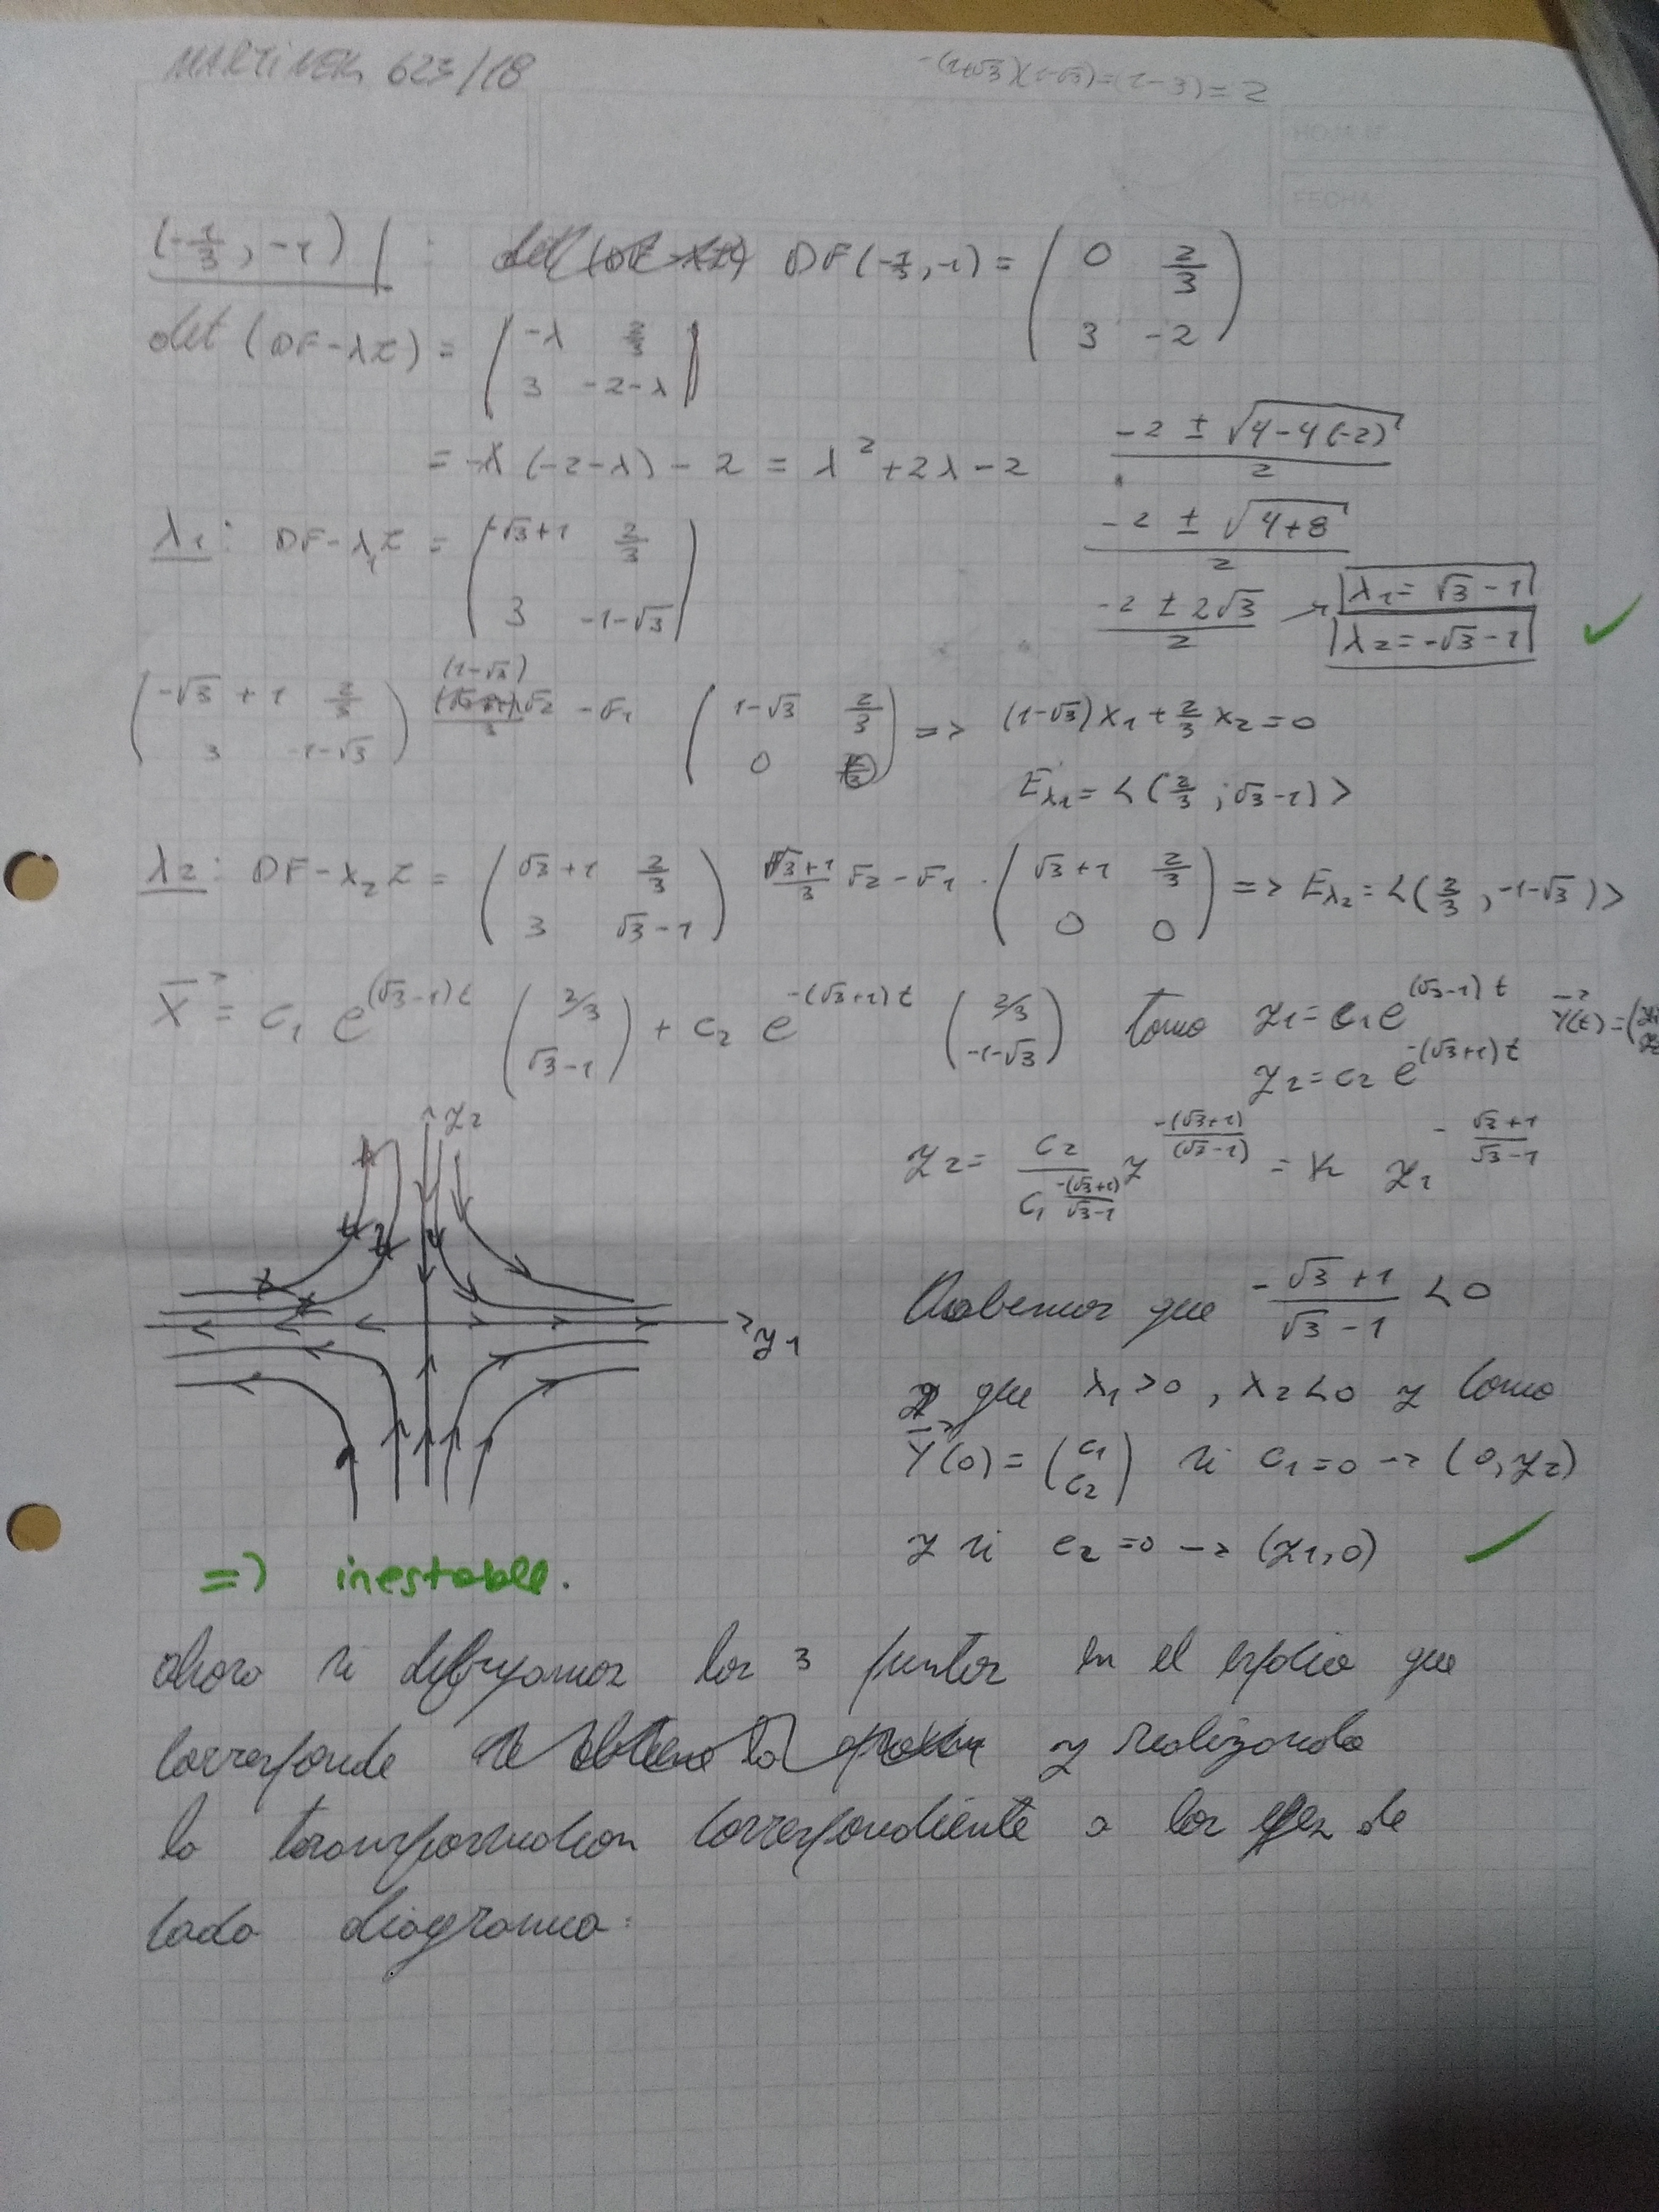 MARTINEZ 623/18
-(1+√3)(1-√3)=(1-3)=2
FECHA
(-1/3, -1) | : DF(-1/3, -1) = ( 0 2/3 ; 3 -2 )
det (DF-λI) = | -λ 2/3 ; 3 -2-λ |
= -λ (-2-λ) - 2 = λ² + 2λ - 2
(-2 ± √(4-4(-2)))/2
(-2 ± √(4+8))/2
(-2 ± 2√3)/2 → λ1 = √3 - 1
λ2 = -√3 - 1
λ1: DF-λ1I = ( -√3+1 2/3 ; 3 -1-√3 )
( -√3+1 2/3 ; 3 -1-√3 ) (1-√3)/3 F2 - F1 ( 1-√3 2/3 ; 0 0 ) => (1-√3)x1 + 2/3 x2 = 0
Eλ1 = <(2/3 ; √3-1)>
λ2: DF-λ2I = ( √3+1 2/3 ; 3 √3-1 ) (√3+1)/3 F2 - F1 ( √3+1 2/3 ; 0 0 ) => Eλ2 = <(2/3, -1-√3)>
X = c1 e^((√3-1)t) ( 2/3 ; √3-1 ) + c2 e^(-(√3+1)t) ( 2/3 ; -1-√3 ) tomo y1 = c1 e^((√3-1)t) Y(t) = (y1
y2 = c2 e^(-(√3+1)t)
y2
y1
y2 = c2/c1^(-(√3+1)/(√3-1)) y^(-(√3+1)/(√3-1)) = K y1^(-(√3+1)/(√3-1))
Sabemos que -(√3+1)/(√3-1) < 0
y que λ1>0, λ2<0 y como
Y(0) = (c1 ; c2) si c1=0 → (0, y2)
y si c2=0 → (y1, 0)
=> inestable.
ahora si dibujamos los 3 puntos en el espacio que
corresponde y realizando
la transformacion correspondiente a los ejes de
cada diagrama: